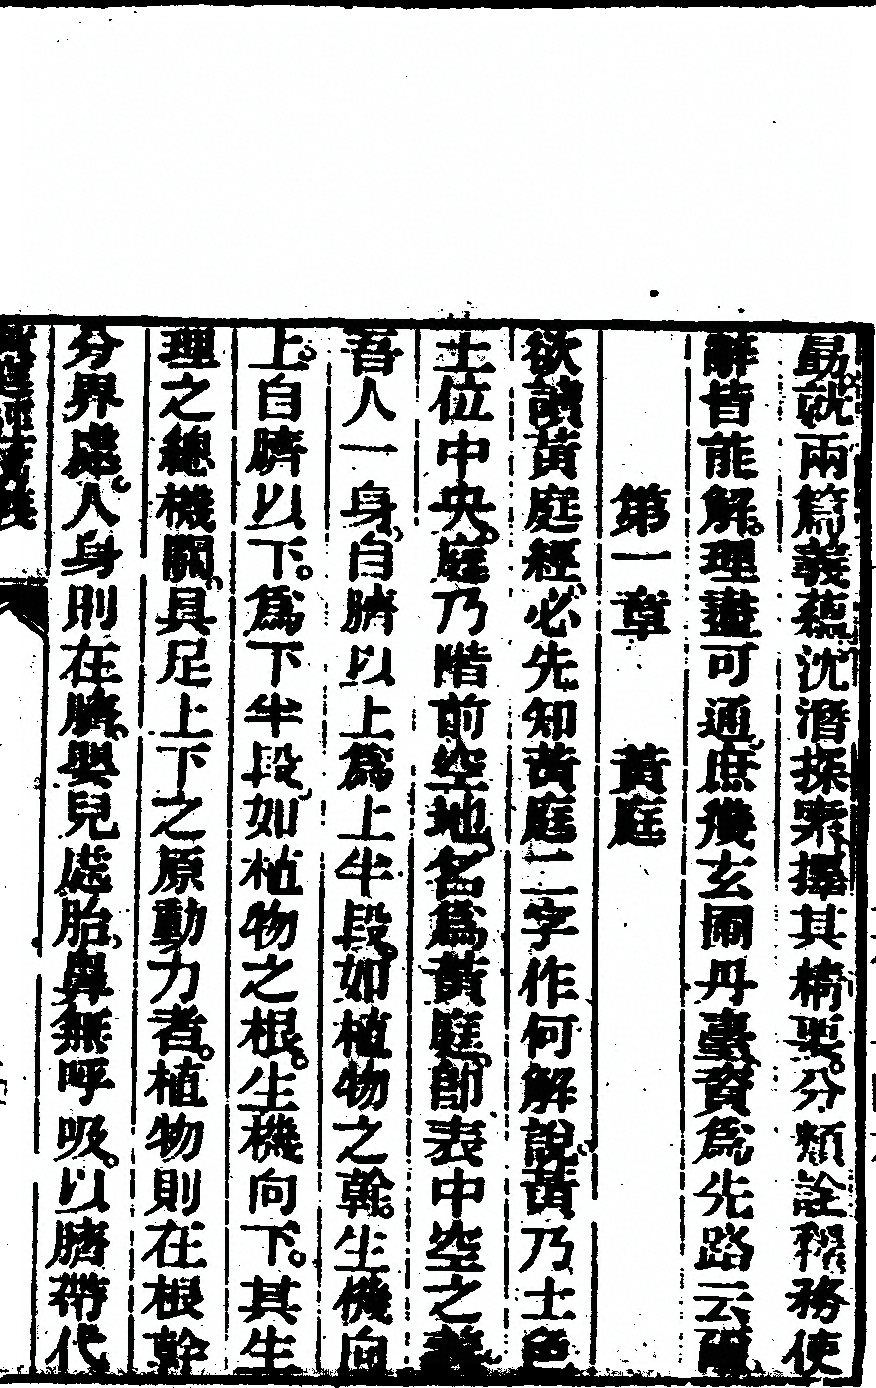 勗就兩篇義蘊沈潛探索擇其精要分類詮釋務使
辭皆能解理盡可通庶幾玄關丹臺資爲先路云爾
第一章 黃庭
欲讀黃庭經必先知黃庭二字作何解說黃乃土色
土位中央庭乃階前空地名爲黃庭卽表中空之義
吾人一身自臍以上爲上半段如植物之幹生機向
上自臍以下爲下半段如植物之根生機向下其生
理之總機關具足上下之原動力者植物則在根幹
分界處人身則在臍嬰兒處胎鼻無呼吸以臍帶代
黃庭經講義